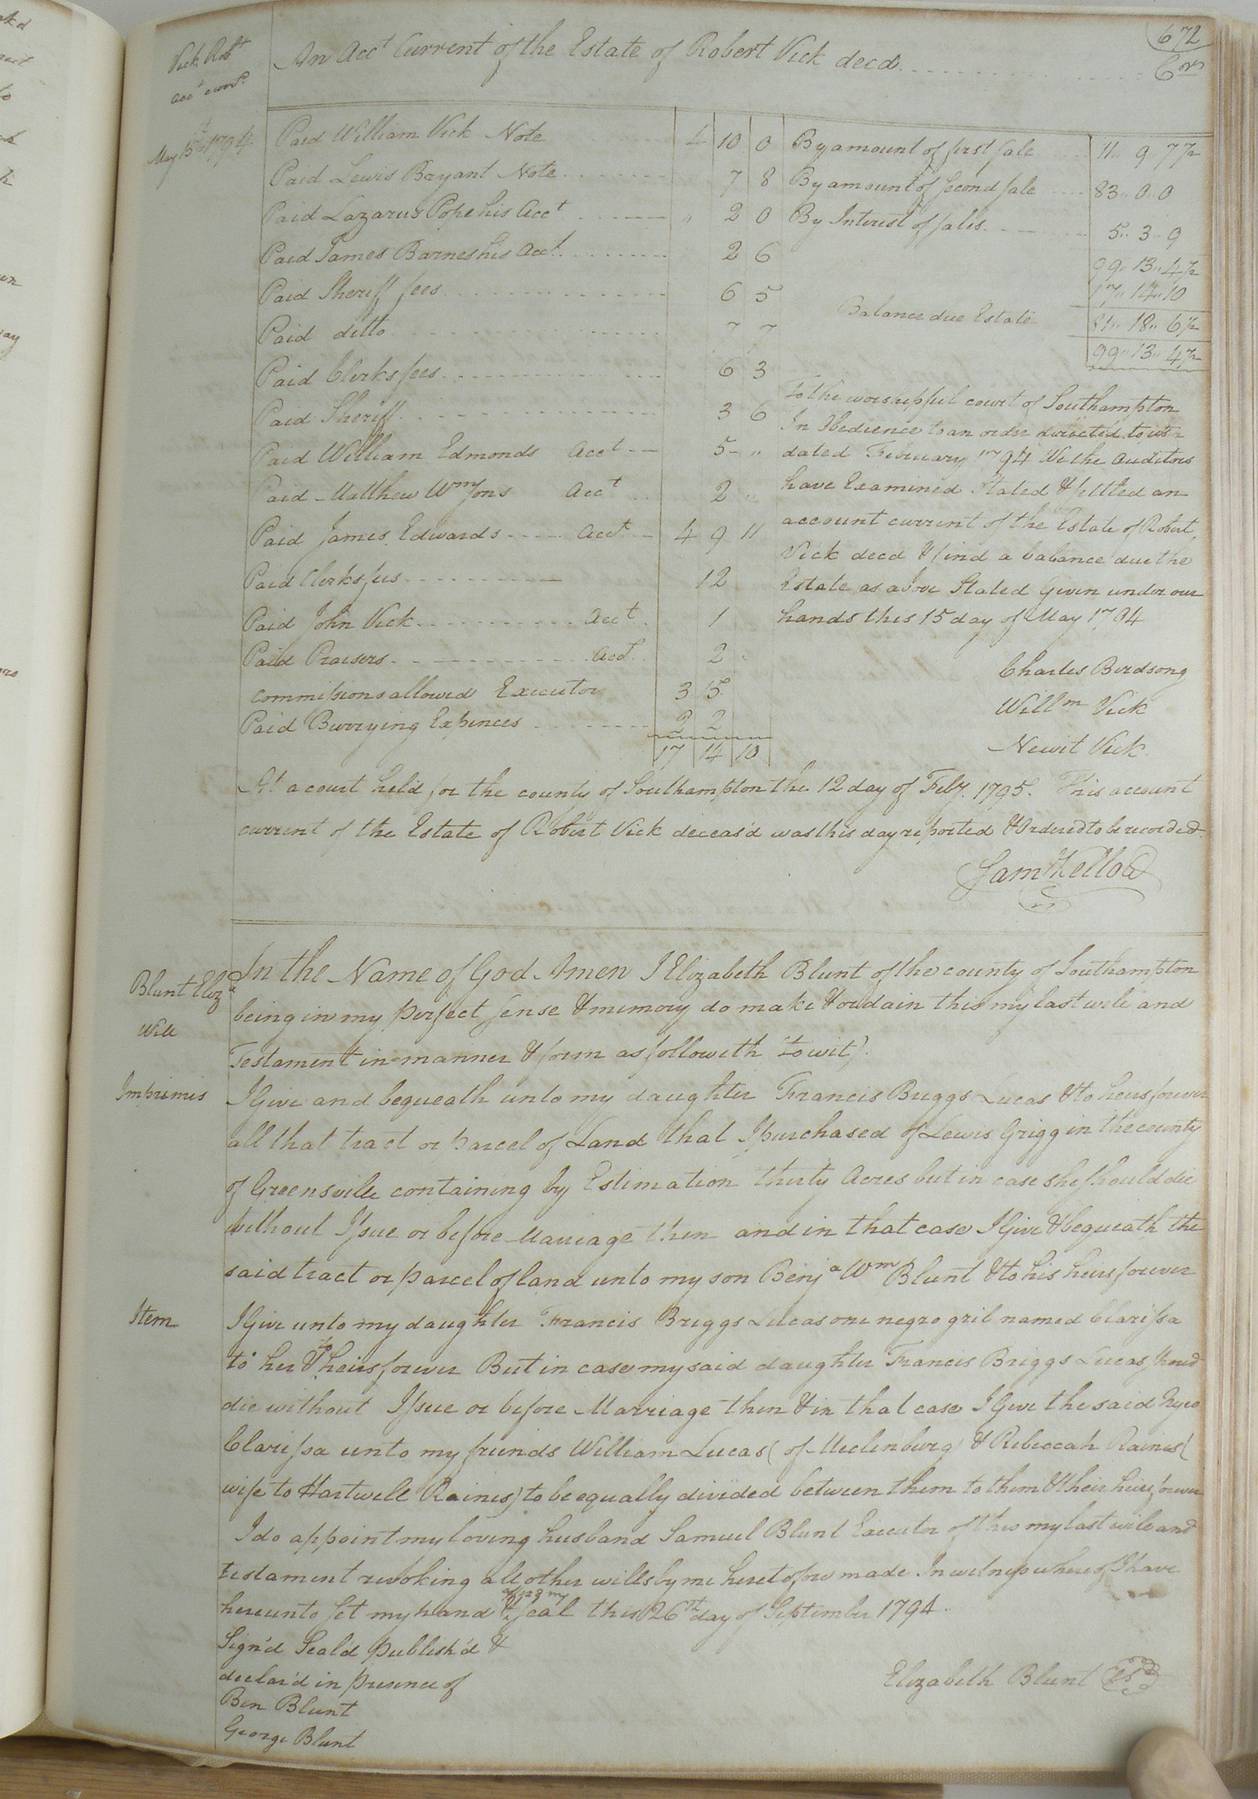 672
Vick Robt
acct currt
An Acct Current of the Estate of Robert Vick decd Crs
May 15th 1794
Paid William Vick Note 4 10 0
Paid Lewis Bryant Note 7 8
Paid Lazarus Pope his Acct " 2 0
Paid James Barnes his Acct 2 6
Paid Sheriff fees 6 5
Paid ditto 7 7
Paid Clerks fees 6 3
Paid Sheriff 3 6
Paid William Edmonds Acct 5 "
Paid Matthew Wmsons Acct 2 "
Paid James Edwards Acct 4 9 11
Paid Clerks fees 12
Paid John Vick Acct 1
Paid Praisers Acct 2
commissions allowed Executor 3 15
Paid Burrying Expences 2 2
17 14 10
By amount of first sale 11 9 7½
By amount of second sale 83 0 0
By Interest of sales 5 3 9
99 13 4½
17 14 10
Balance due Estate 81 18 6½
99 13 4½
To the worshipful court of Southampton
In Obedience to an order directed to us
dated February 1794 We the auditors
have Examined Stated & settled an
account current of the Estate of Robert
Vick decd & find a balance due the
Estate as above Stated Given under our
hands this 15 day of May 1794
Charles Birdsong
Willm Vick
Newit Vick
At a court held for the county of Southampton the 12 day of Feby. 1795. This account
current of the Estate of Robert Vick deceas'd was this day reported & Ordered to be recorded
Sam Kello
Blunt Eliza
Will
In the Name of God Amen I Elizabeth Blunt of the county of Southampton
being in my perfect sense & memory do make & ordain this my last will and
Testament in manner & form as followith (to wit)
Imprimis
I Give and bequeath unto my daughter Francis Briggs Lucas & to heirs forever
all that tract or parcel of Land that I purchased of Lewis Grigg in the county
of Greensville containing by Estimation thirty Acres but in case she should die
without Issue or before Marriage then and in that case I Give & bequeath the
said tract or parcel of land unto my son Benja Wm Blunt & to his heirs forever
Item
I Give unto my daughter Francis Briggs Lucas one negro gril named Clarissa
to her & to heirs forever But in case my said daughter Francis Briggs Lucas should
die without Issue or before Marriage then & in that case I Give the said Negro
Clarissa unto my friends William Lucas (of Meclenburg) & Rebeccah Raines (
wife to Hartwell Raines) to be equally divided between them to them & their heirs forever
I do appoint my loving husband Samuel Blunt Executor of this my last will and
testament revoking all other wills by me heretofore made In witness whereof I have
hereunto set my hand & seal this 26th day of September 1794
Sign'd Seal'd publish'd &
declar'd in presence of
Elizabeth Blunt
Ben Blunt
George Blunt